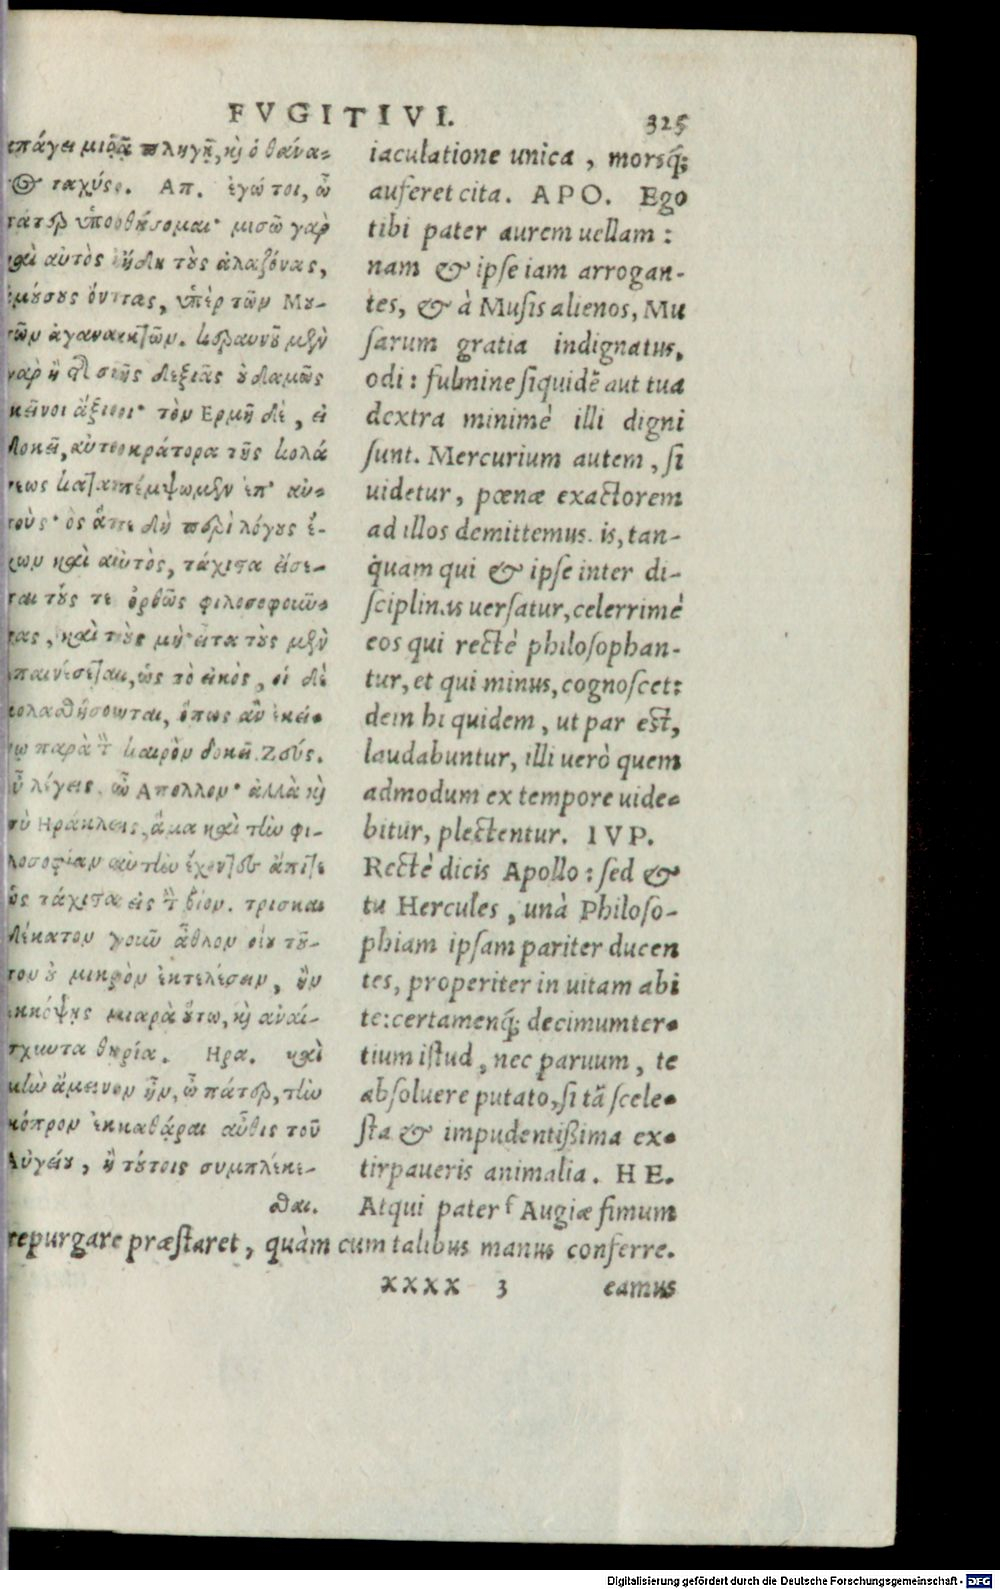 FVGITIVI. 325
πάγει μιᾷ πληγῇ, κỳ ὁ θάνα-
ταχύς. Απ. ἐγώ τοι, ὦ
ὑποθήσομαι· μισῶ γὰρ
καὶ αὐτὸς ἤδη τοὺς ἀλαζόνας,
ὄντας, ὑπὲρ τῶν Μου-
ἀγανακτῶν. κεραυνοῦ μὲν
ἢ τῆς σῆς δεξιᾶς οὐδαμῶς
ἄξιοι· τὸν Ερμῆ δὲ, εἰ
δοκεῖ, αὐτοκράτορα τῆς κολά
καταπέμψωμεν ἐπ' αὐ-
τοὺς· ὃς ἅτε δὴ περὶ λόγους ἔ-
χων καὶ αὐτὸς, τάχιστα εἴσε-
ται τούς τε ὀρθῶς φιλοσοφοιῶ-
τας, καὶ τοὺς μή· εἶτα τοὺς μὲν
παινέσεται, ὡς τὸ εἰκὸς, οἱ δὲ
κολασθήσονται, ὅπως αὖ ἐκεί-
παρὰ τ καιρὸν δοκεῖ. Ζεύς.
λέγεις ὦ Απολλον· ἀλλὰ κỳ
Ηράκλεις, ἅμα καὶ τὴν φι-
λοσοφίαν αὐτὴν ἔχοντες ἄπιτε
ὡς τάχιστα εἰς τ βίον. τρισκαι
δέκατον γοῦν ἆθλον οἴου τοῦ-
τον οὐ μικρὸν ἐκτελέσειν, ἢν
ἐκκόψῃς μιαρὰ οὕτω, κỳ ἀναί-
σχυντα θηρία. Ηρα. καὶ
ἄμεινον ἦν, ὦ πάτερ, τὴν
κόπρον ἐκκαθᾶραι αὖθις τοῦ
Αὐγείου, ἢ τούτοις συμπλέκε-
σθαι.
iaculatione unica, morsq́;
auferet cita. APO. Ego
tibi pater aurem uellam:
nam & ipse iam arrogan-
tes, & à Musis alienos, Mu
sarum gratia indignatus,
odi: fulmine siquidē aut tua
dextra minimè illi digni
sunt. Mercurium autem, si
uidetur, pœnæ exactorem
ad illos demittemus. is, tan-
quam qui & ipse inter di-
sciplinas uersatur, celerrimè
eos qui rectè philosophan-
tur, et qui minus, cognoscet:
dein hi quidem, ut par est,
laudabuntur, illi uerò quem
admodum ex tempore uide-
bitur, plectentur. IVP.
Rectè dicis Apollo: sed &
tu Hercules, unà Philoso-
phiam ipsam pariter ducen
tes, properiter in uitam abi
te: certamenq́; decimumter-
tium istud, nec paruum, te
absoluere putato, si tā scele-
sta & impudentißima ex-
tirpaueris animalia. HE.
Atqui pater Augiæ fimum
repurgare præstaret, quàm cum talibus manus conferre.
xxxx 3 eamus
Digitalisierung gefördert durch die Deutsche Forschungsgemeinschaft - DFG